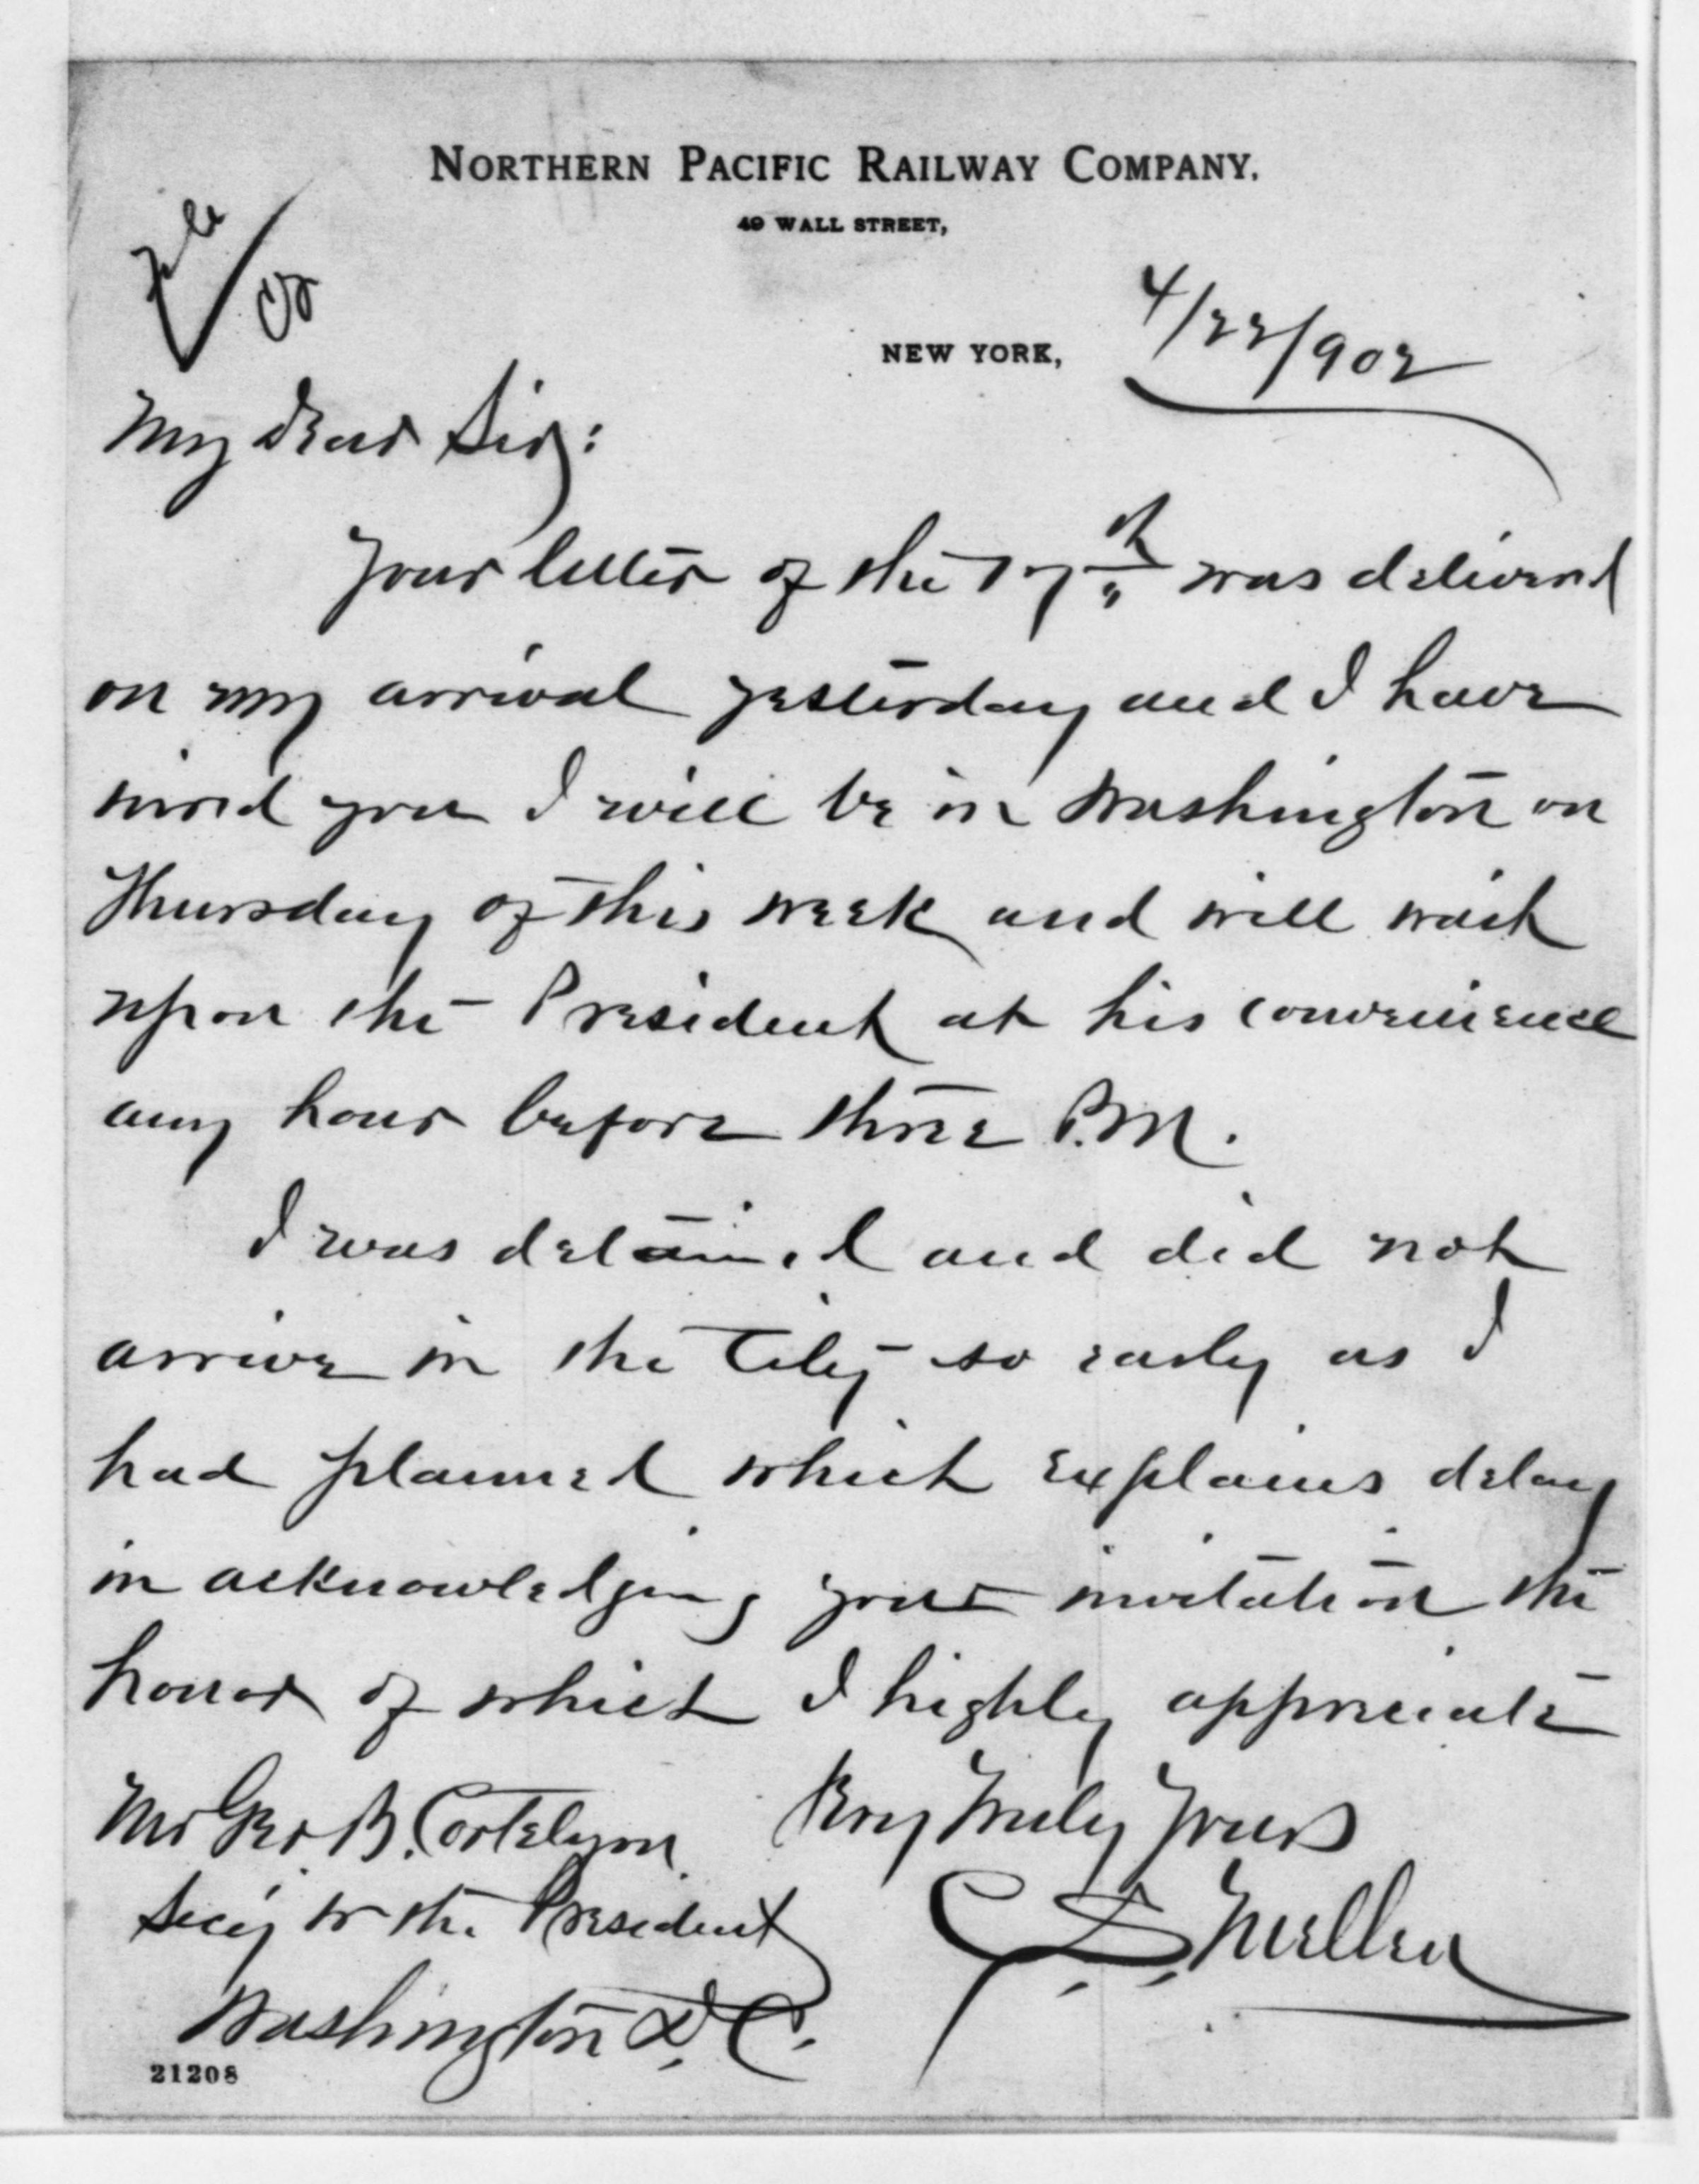 NORTHERN PACIFIC RAILWAY COMPANY.
49 WALL STREET,
file
NEW YORK, 4/22/902
My Dear Sir:
Your letter of the 17th was delivered
on my arrival yesterday and I have
wired you I will be in Washington on
Thursday of this week and will wait
upon the President at his convenience
any hour before three P.M.
I was detained and did not
arrive in the City so early as I
had planned which explains delay
in acknowledging your invitation the
honor of which I highly appreciate
Very Truly Yours
C. S. Mellen
Mr Geo B. Cortelyou
Secy to the President
Washington D.C.
21208